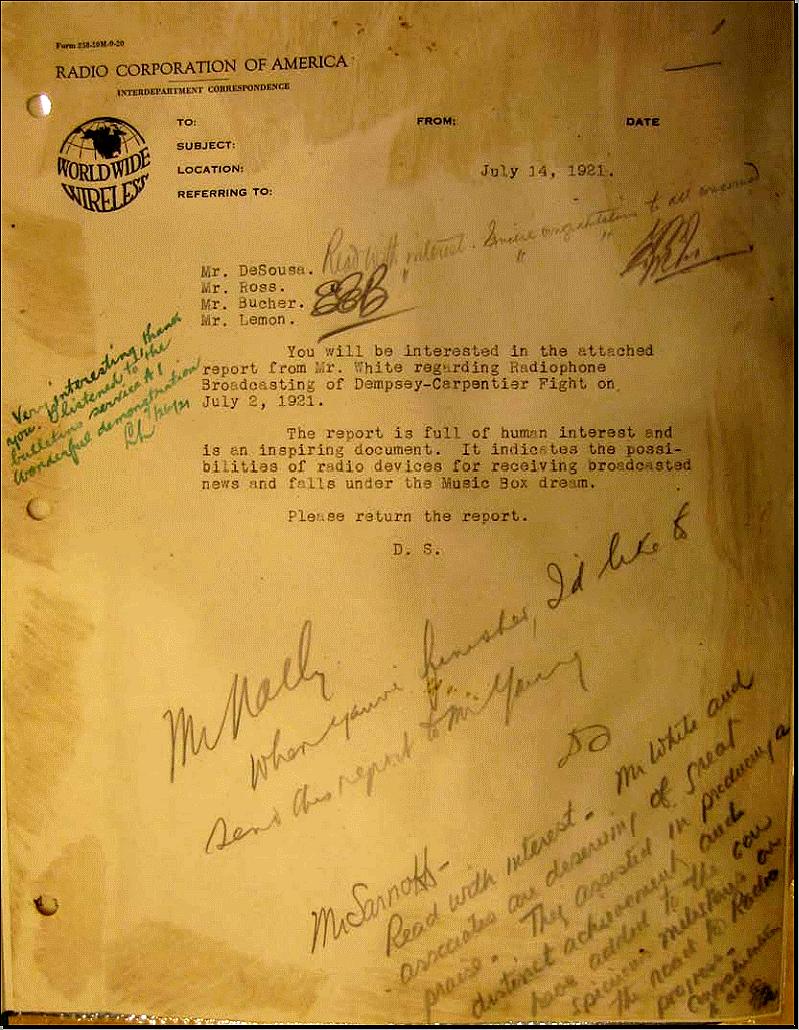 Form 258-10M-9-20
RADIO CORPORATION OF AMERICA
INTERDEPARTMENT CORRESPONDENCE
WORLD WIDE
WIRELESS
TO:
FROM:
DATE
SUBJECT:
LOCATION:
REFERRING TO:
July 14, 1921.
Read with interest. Sincere congratulations to all concerned
Mr. DeSousa. "
Mr. Ross. " "
Mr. Bucher. EEB
Mr. Lemon.
Very interesting thank
you. I listened to the
bulletins service A1
Wonderful demonstration
7/20/21
You will be interested in the attached
report from Mr. White regarding Radiophone
Broadcasting of Dempsey-Carpentier Fight on
July 2, 1921.
The report is full of human interest and
is an inspiring document. It indicates the possi-
bilities of radio devices for receiving broadcasted
news and falls under the Music Box dream.
Please return the report.
D. S.
Mr Nally
When you've finished, I'd like to
send this report to Mr Young
DS
Mr Sarnoff-
Read with interest - Mr White and
associates are deserving of great
praise - They assisted in producing a
distinct achievement and
have added to the con
spicuous milestones on
the road to Radio
progress -
Congratulations
to all